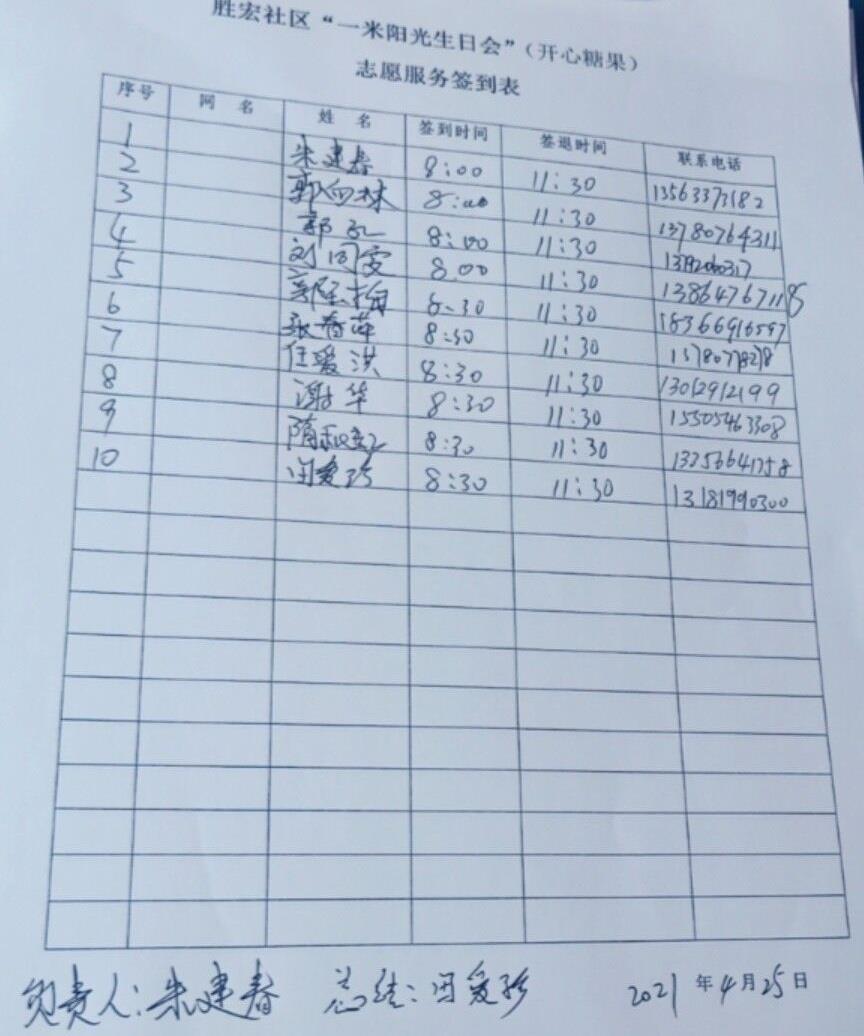 胜宏社区“一米阳光生日会”(开心糖果)
志愿服务签到表
序号 网 名 姓 名 签到时间 签退时间 联系电话
1 朱建春 8:00 11:30 13563373182
2 郭向林 8:00 11:30 13780764311
3 郭 8:00 11:30
4 刘同安 8:00 11:30 13864767118
5 8:30 11:30 18366916597
6 张春萍 8:30 11:30
7 任爱洪 8:30 11:30 13012912199
8 谢华 8:30 11:30 15505463308
9 隋 8:30 11:30 13256641758
10 田爱珍 8:30 11:30 13181990300
负责人:朱建春 总结:田爱珍 2021年4月25日